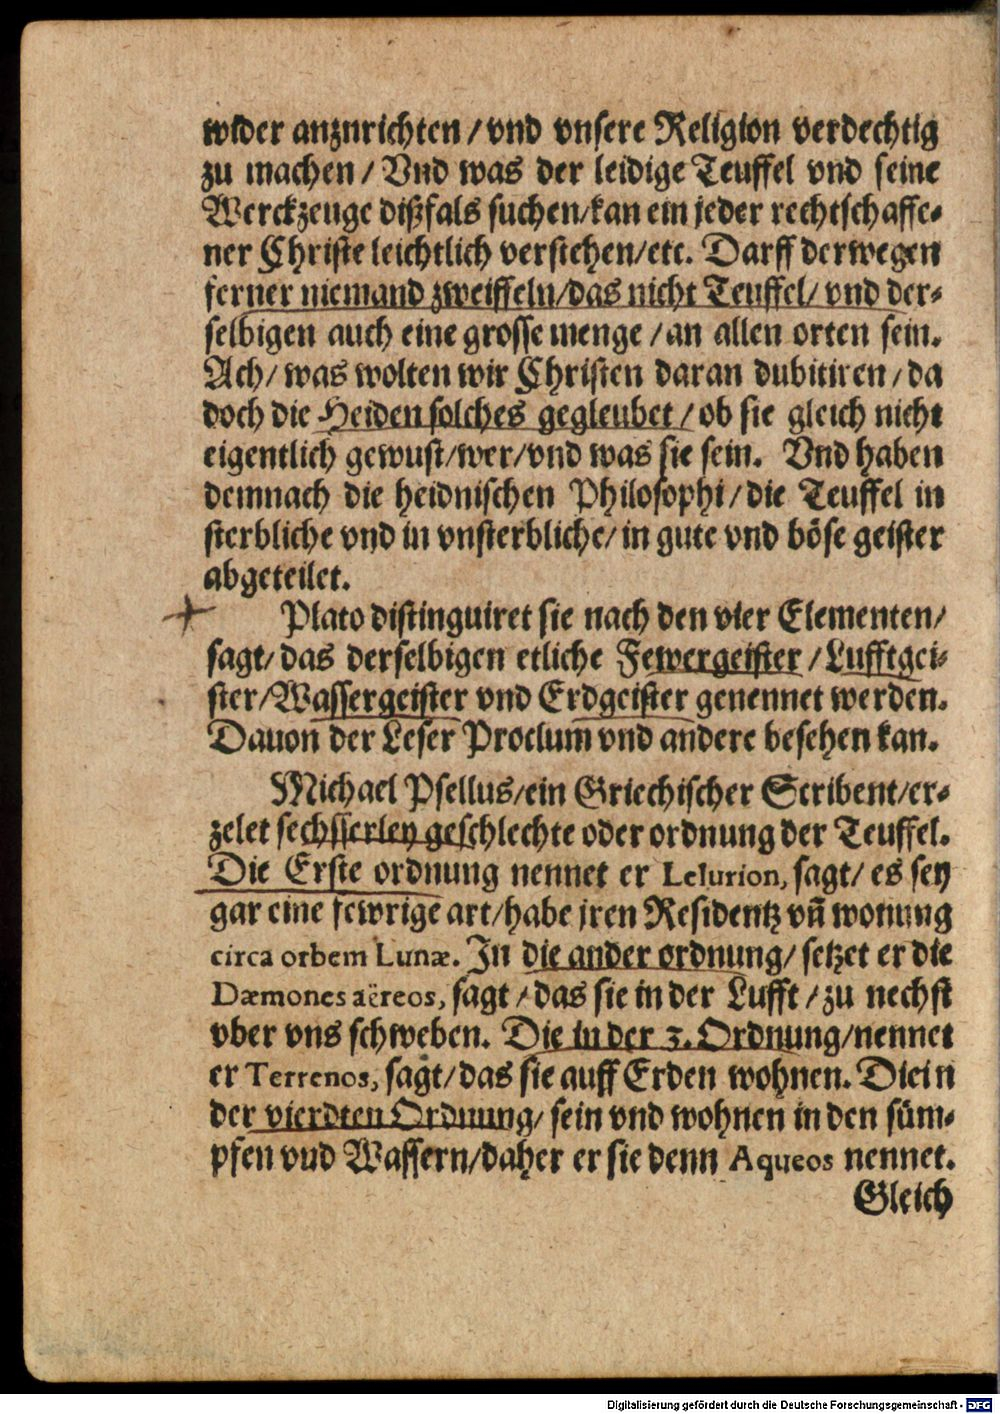 wider anzurichten / vnd vnsere Religion verdechtig
zu machen / Vnd was der leidige Teuffel vnd seine
Werckzeuge dißfals suchen/kan ein jeder rechtschaffe-
ner Christe leichtlich verstehen/etc. Darff derwegen
ferner niemand zweiffeln/das nicht Teuffel/ vnd der-
selbigen auch eine grosse menge / an allen orten sein.
Ach/ was wolten wir Christen daran dubitiren / da
doch die Heiden solches gegleubet / ob sie gleich nicht
eigentlich gewust/wer/vnd was sie sein. Vnd haben
demnach die heidnischen Philosophi / die Teuffel in
sterbliche vnd in vnsterbliche/ in gute vnd böse geister
abgeteilet.
Plato distinguiret sie nach den vier Elementen/
sagt/ das derselbigen etliche Fewergeister / Lufftgei-
ster/Wassergeister vnd Erdgeister genennet werden.
Dauon der Leser Proclum vnd andere besehen kan.
Michael Psellus/ein Griechischer Scribent/er-
zelet sechsserley geschlechte oder ordnung der Teuffel.
Die Erste ordnung nennet er Lelurion, sagt/ es sey
gar eine fewrige art/habe jren Residentz vn̄ wonung
circa orbem Lunæ. In die ander ordnung/ setzet er die
Dæmones aëreos, sagt / das sie in der Lufft / zu nechst
vber vns schweben. Die in der 3. Ordnung/nennet
er Terrenos, sagt/das sie auff Erden wohnen. Die in
der vierdten Ordnung/ sein vnd wohnen in den süm-
pfen vnd Wassern/daher er sie denn Aqueos nennet.
Gleich
Digitalisierung gefördert durch die Deutsche Forschungsgemeinschaft - DFG